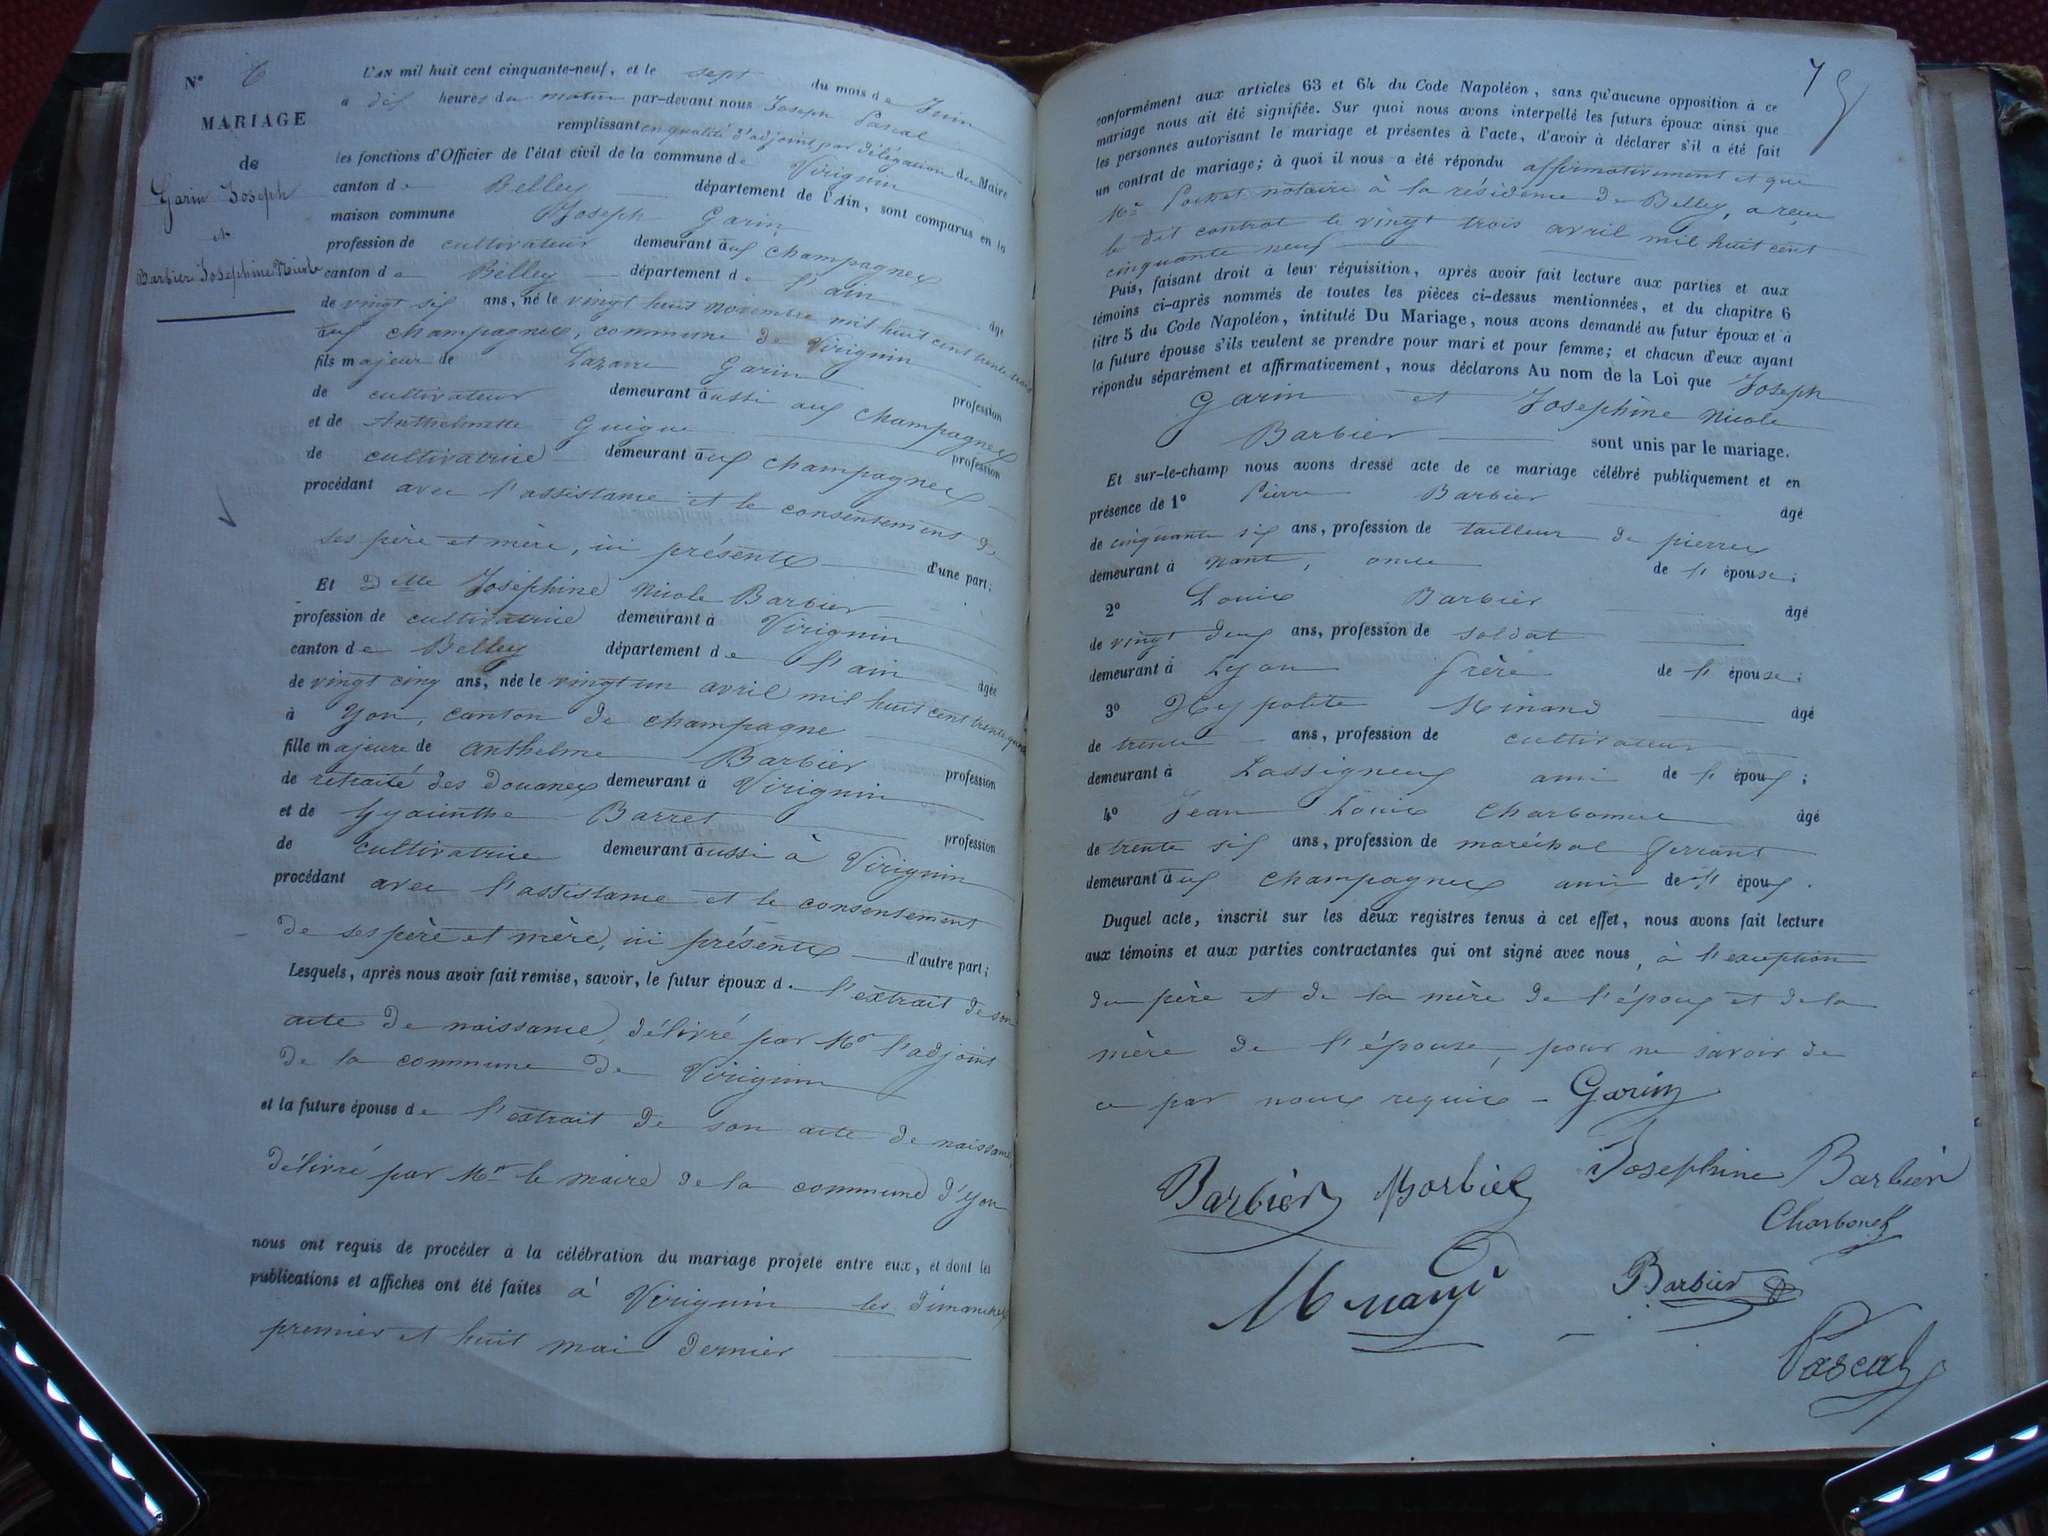 N° 6
MARIAGE
de
Garin Joseph
et
Barbier Josephine Nicole
L'AN mil huit cent cinquante-neuf, et le sept du mois de Juin
à dix heures du matin par-devant nous Joseph Pascal
remplissant en qualité d'adjoint par délégation du Maire
les fonctions d'Officier de l'état civil de la commune de Virignin
canton de Belley département de l'Ain, sont comparus en la
maison commune Joseph Garin
profession de cultivateur demeurant aux champagnes
canton de Belley département de l'ain âgé
de vingt six ans, né le vingt huit novembre mil huit cent trente trois
aux champagnes, commune de Virignin
fils majeur de Lazare Garin profession
de cultivateur demeurant aussi aux champagnes
et de Anthelmette Guigue profession
de cultivatrice demeurant aux champagnes
procédant avec l'assistance et le consentement de
ses père et mère, ici présents d'une part;
Et Delle Joséphine Nicole Barbier
profession de cultivatrice demeurant à Virignin
canton de Belley département de l'ain âgée
de vingt cinq ans, née le vingt un avril mil huit cent trente quatre
à Yon, canton de champagne
fille majeure de Anthelme Barbier profession
de retraité des douanes demeurant à Virignin
et de Hyacinthe Barret profession
de cultivatrice demeurant aussi à Virignin
procédant avec l'assistance et le consentement
de ses père et mère, ici présents d'autre part;
Lesquels, après nous avoir fait remise, savoir, le futur époux de l'extrait de son
acte de naissance, délivré par Mr l'adjoint
de la commune de Virignin
et la future épouse de l'extrait de son acte de naissance,
délivré par Mr le maire de la commune d'Yon
nous ont requis de procéder à la célébration du mariage projeté entre eux, et dont les
publications et affiches ont été faites à Virignin les dimanches
premier et huit mai dernier
conformément aux articles 63 et 64 du Code Napoléon, sans qu'aucune opposition à ce
mariage nous ait été signifiée. Sur quoi nous avons interpellé les futurs époux ainsi que
les personnes autorisant le mariage et présentes à l'acte, d'avoir à déclarer s'il a été fait
un contrat de mariage; à quoi il nous a été répondu affirmativement et que
Me Pochet notaire à la résidence de Belley, a reçu
le dit contrat le vingt trois avril mil huit cent
cinquante neuf
Puis, faisant droit à leur réquisition, après avoir fait lecture aux parties et aux
témoins ci-après nommés de toutes les pièces ci-dessus mentionnées, et du chapitre 6
titre 5 du Code Napoléon, intitulé Du Mariage, nous avons demandé au futur époux et à
la future épouse s'ils veulent se prendre pour mari et pour femme; et chacun d'eux ayant
répondu séparément et affirmativement, nous déclarons Au nom de la Loi que Joseph
Garin et Joséphine Nicole
Barbier sont unis par le mariage.
Et sur-le-champ nous avons dressé acte de ce mariage célébré publiquement et en
présence de 1° Pierre Barbier âgé
de cinquante six ans, profession de tailleur de pierres
demeurant à Nant, oncle de l'épouse;
2° Louis Barbier âgé
de vingt deux ans, profession de soldat
demeurant à Lyon frère de l'épouse;
3° Hyppolite Minand âgé
de trente ans, profession de cultivateur
demeurant à Lassigneux ami de l'époux;
4° Jean Louis Charbonnel âgé
de trente six ans, profession de maréchal ferrant
demeurant aux champagnes ami de l'époux.
Duquel acte, inscrit sur les deux registres tenus à cet effet, nous avons fait lecture
aux témoins et aux parties contractantes qui ont signé avec nous, à l'exception
du père et de la mère de l'époux et de la
mère de l'épouse, pour ne savoir de
ce par nous requis - Garin
Josephine Barbier
Barbier Barbier
Charbonel
Minand
Barbier
Pascal